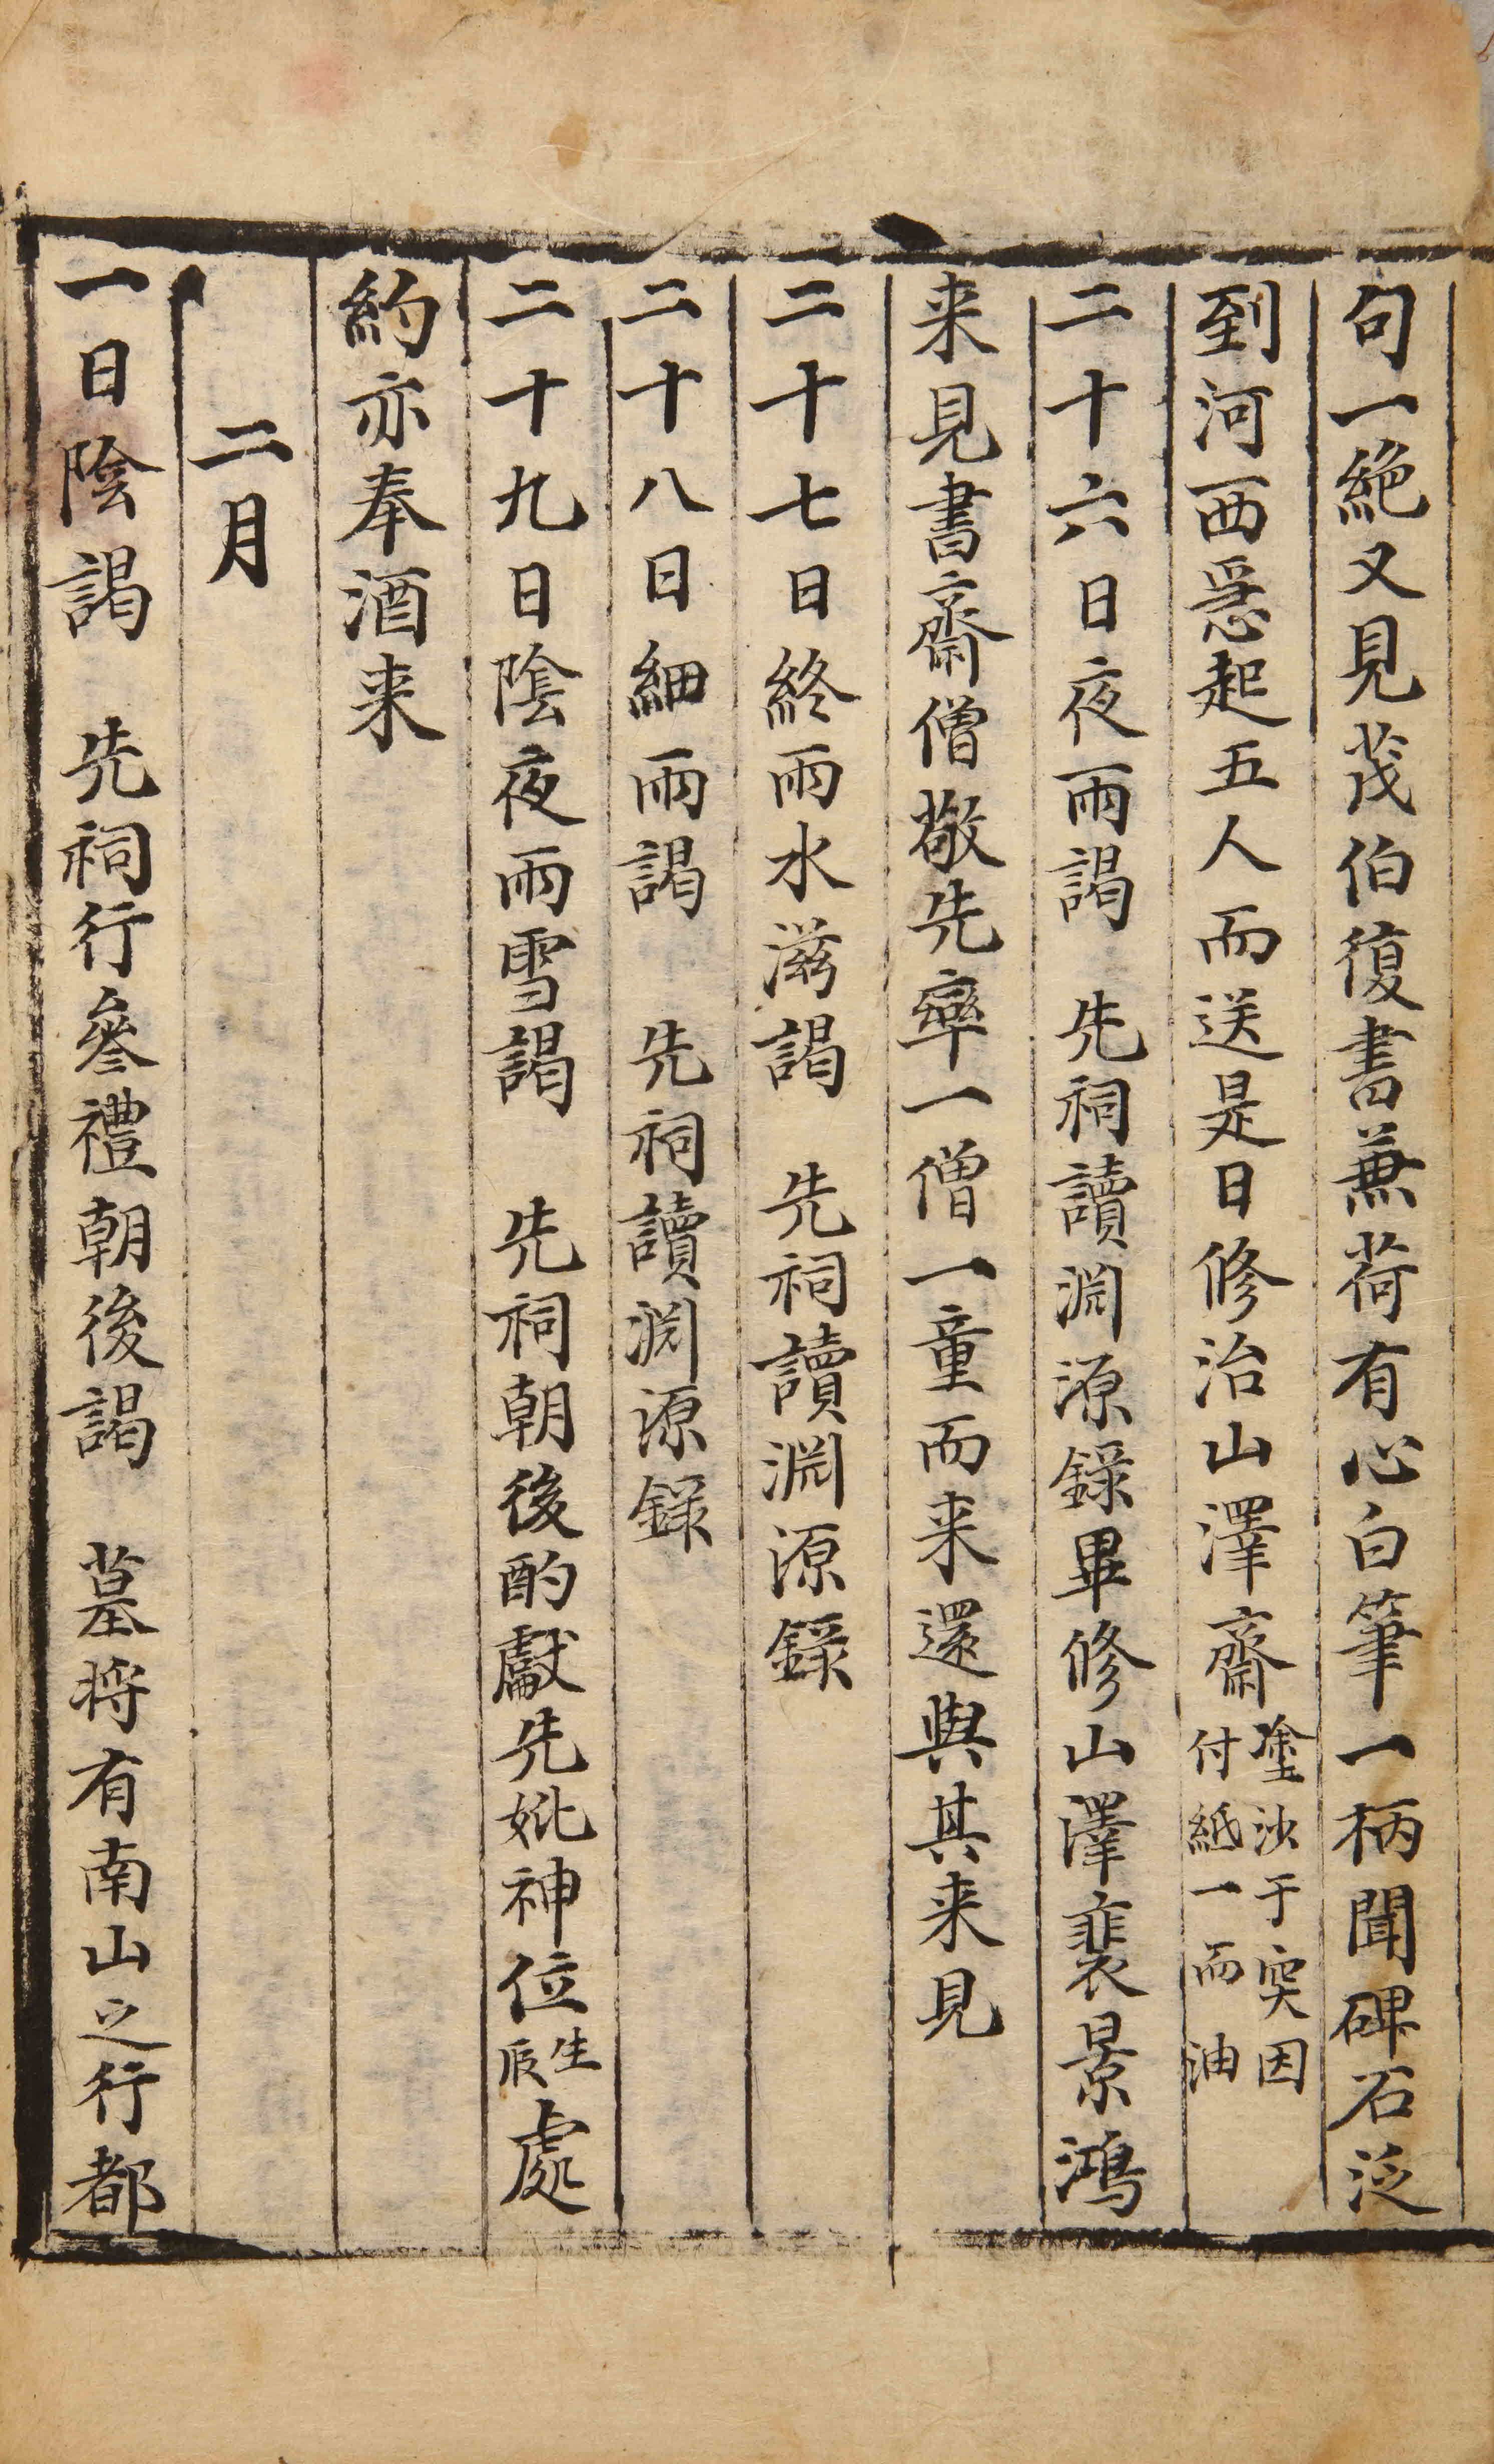 句一絶又見茂伯復書兼荷有心白筆一柄聞碑石泛
到河西急起五人而送是日修治山澤齋塗沙于突因付紙一而油
二十六日夜雨謁 先祠讀淵源錄畢修山澤裵景鴻
来見書齋僧敬先率一僧一童而来還與其来見
二十七日終雨水滋謁 先祠讀淵源錄
二十八日細雨謁 先祠讀淵源錄
二十九日陰夜雨雪謁 先祠朝後酌獻先妣神位生辰處
約亦奉酒来
二月
一日陰謁 先祠行參禮朝後謁 墓将有南山之行都